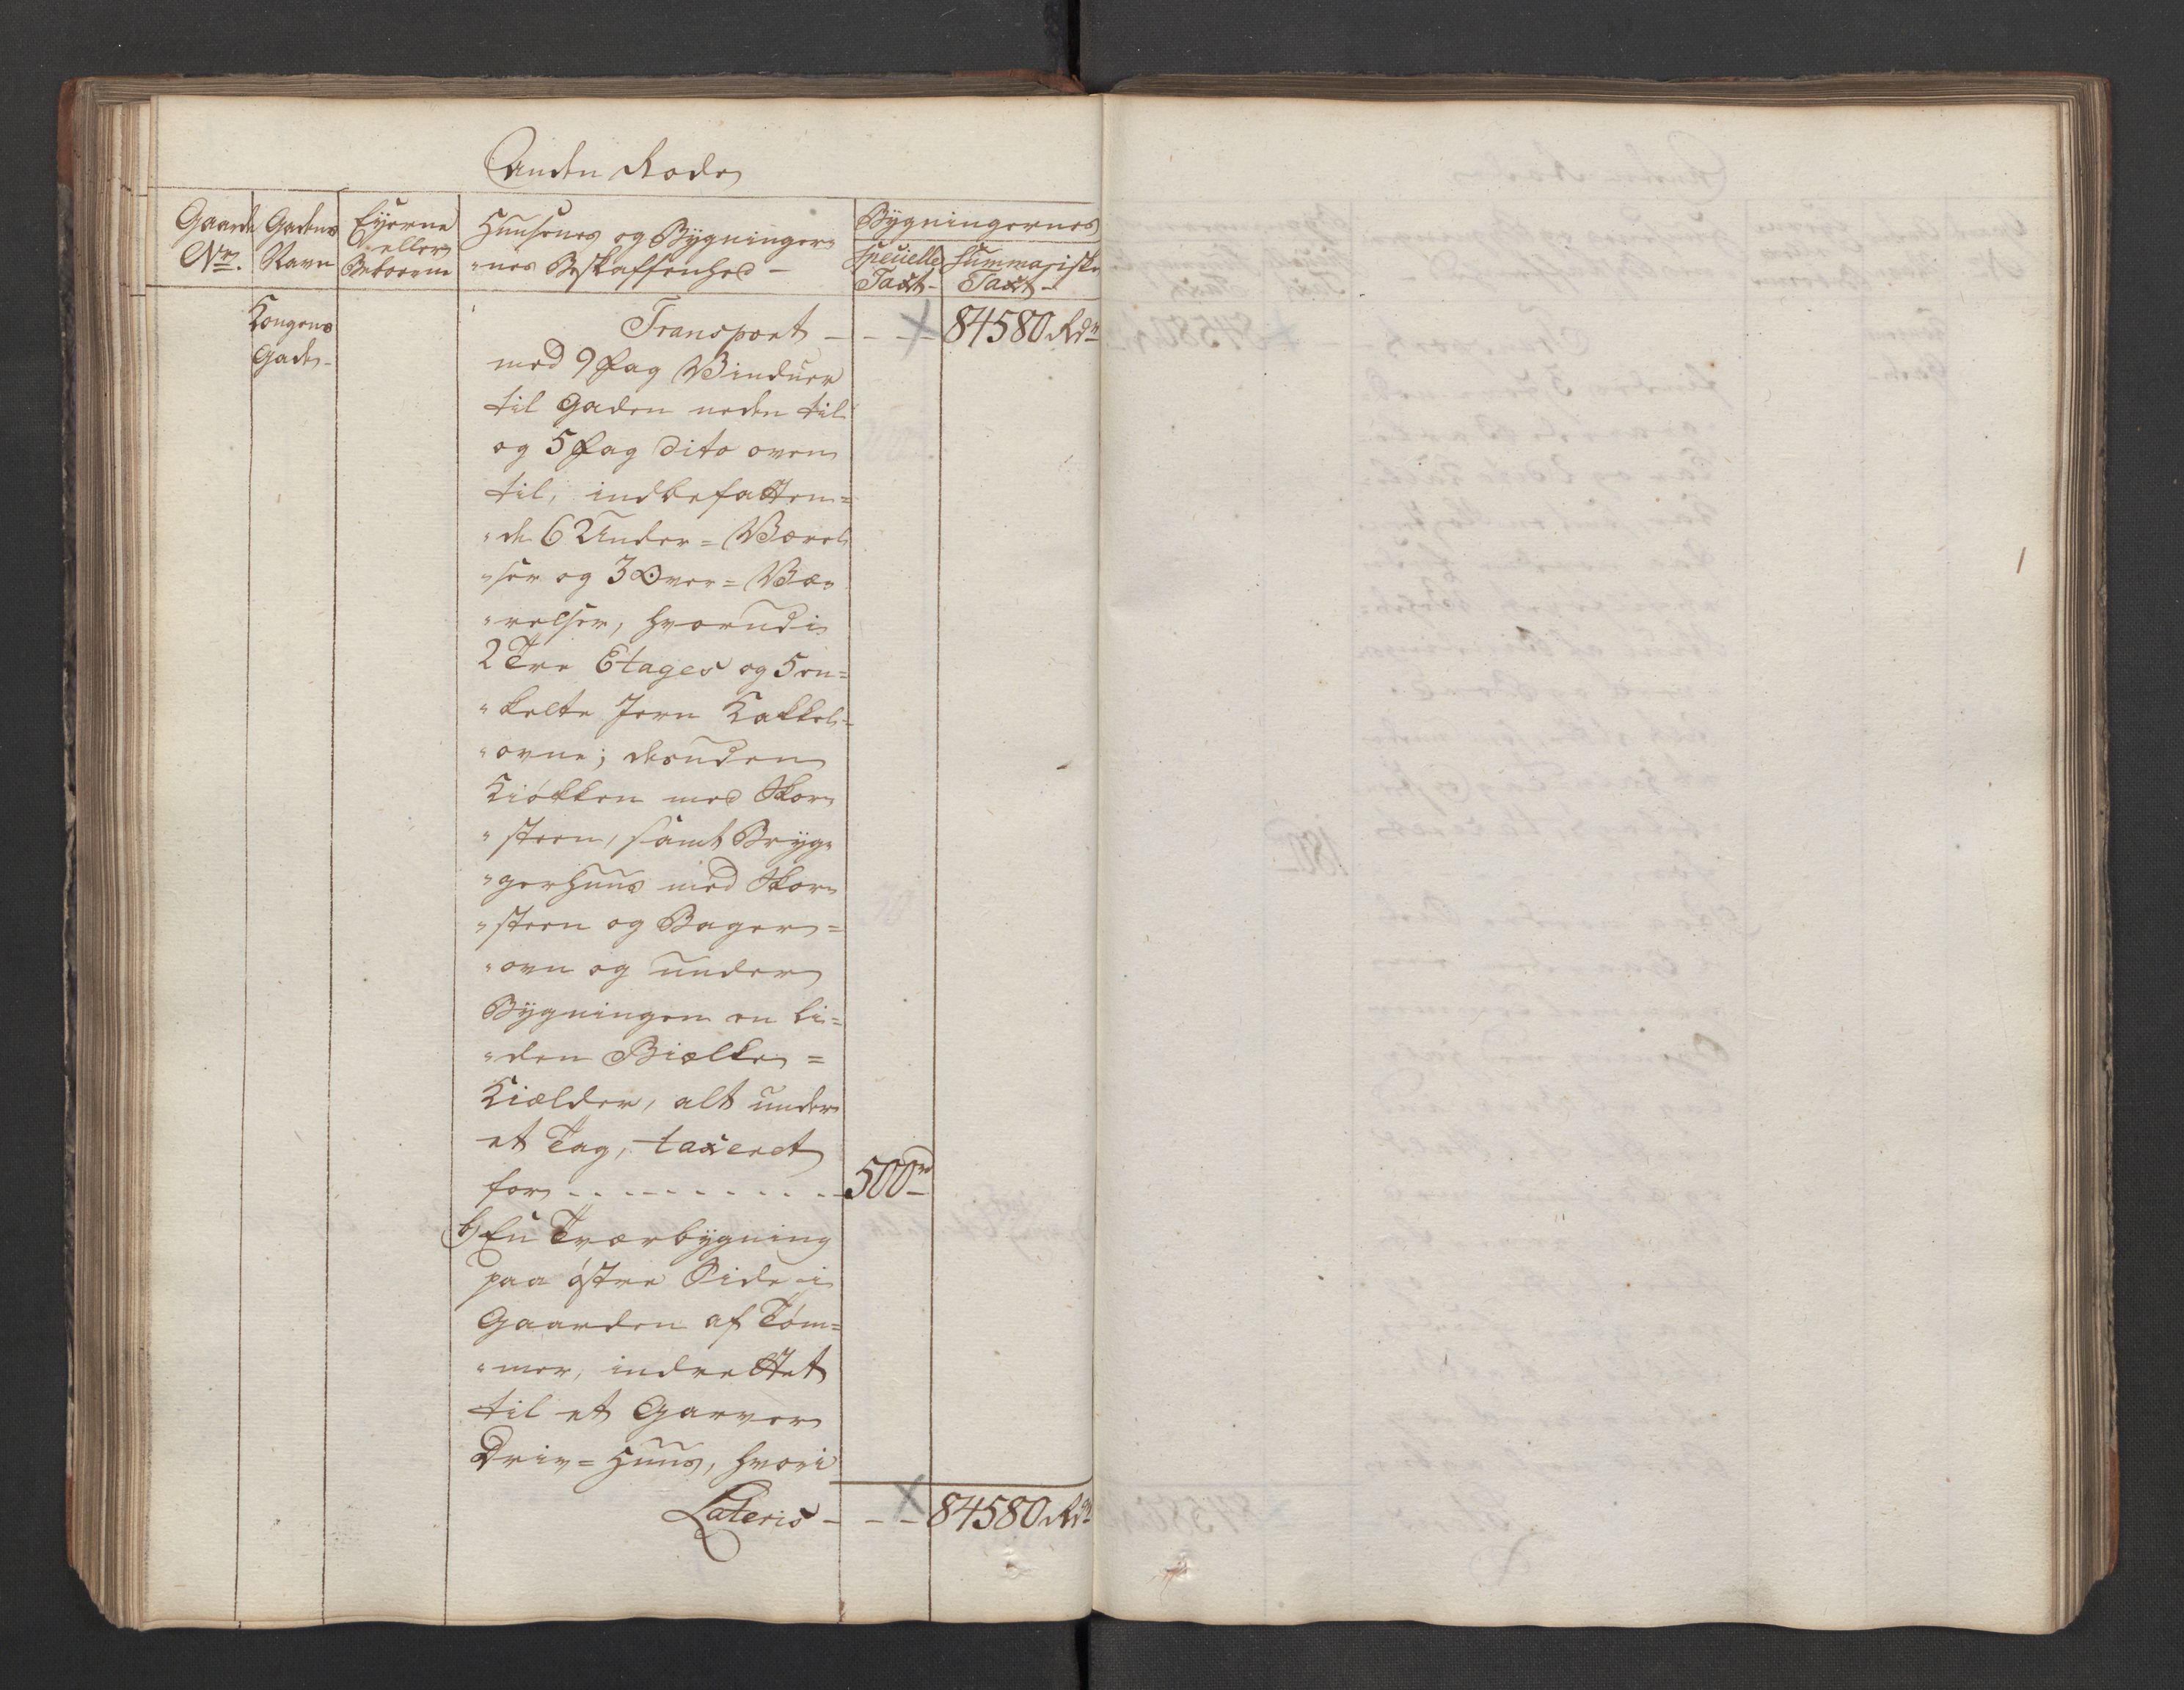 Anden Rode
Gaards
No.
Gadens
Navn
Eÿerne
eller
Beboerne
Huusenes og Bÿgninger=
"nes Beskaffenhed –
Bÿgningernes
Specielle
Taxt –
Summariske
Taxt –
Kongens
Gade –
Transport – – – – 84580 Rdr
med 9 Fag Vinduer
til Gaden neden til
og 5 Fag dito oven
til, indbefatten=
"de 6 Under=Værel=
"ser og 3 Over=Væ=
"relser, hvorudi
2 Tre Etages og 5 en=
"kelte Jern Kakkel=
"ovne; desuden
Kiökken med Skor=
"steen, samt Bryg=
"gerhuus med Skor=
"steen og Bager=
"ovn og under
Bÿgningen en li=
"den Biælke=
Kiælder, alt under
et Tag, taxeret
for - - - - - - - - - 500 rd
b) En Tværbÿgning
paa östre Side i
Gaarden af Töm=
"mer, indrettet
til et Garver
Driv=Huus, hvori
Lateris – – – 84580 Rdr